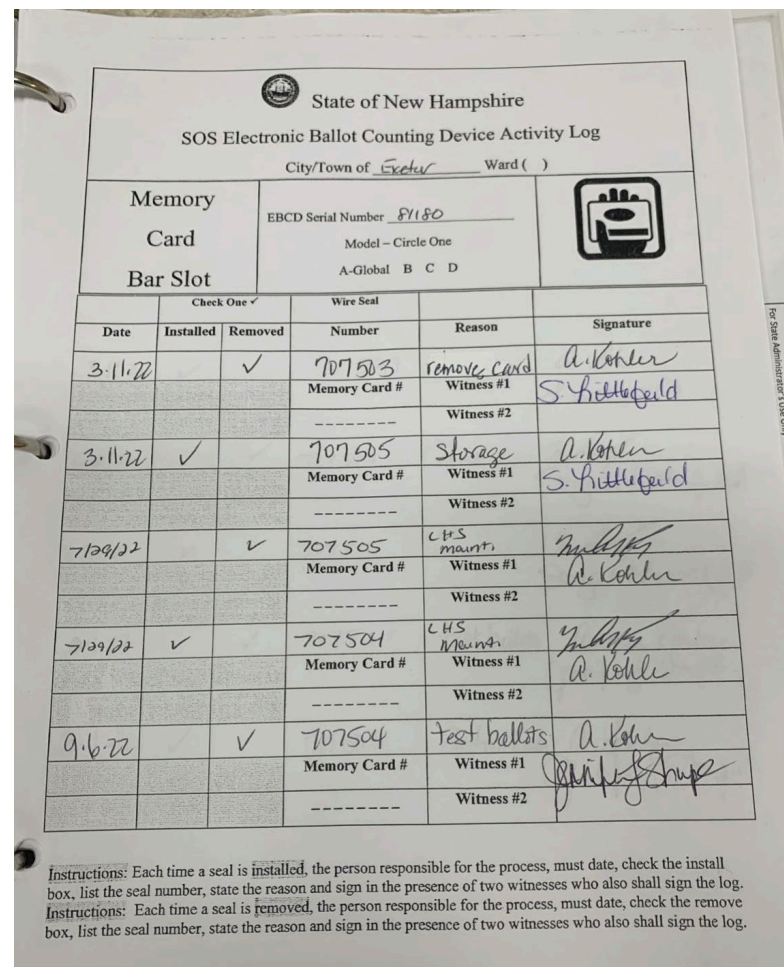 State of New Hampshire
SOS Electronic Ballot Counting Device Activity Log
City/Town of Exeter Ward ( )
Memory
Card
Bar Slot
EBCD Serial Number 81180
Model – Circle One
A-Global B C D
Check One ✓ Wire Seal
Date Installed Removed Number Reason Signature
3.11.22 ✓ 707503 remove card A. Kohler
Memory Card # Witness #1 S. Littlefield
Witness #2
3.11.22 ✓ 707505 Storage A. Kohler
Memory Card # Witness #1 S. Littlefield
Witness #2
7/29/22 ✓ 707505 LHS
maint.
Memory Card # Witness #1 A. Kohler
Witness #2
7/29/22 ✓ 707504 LHS
Maint.
Memory Card # Witness #1 A. Kohler
Witness #2
9.6.22 ✓ 707504 test ballots A. Kohler
Memory Card # Witness #1 Jennifer Shupe
Witness #2
Instructions: Each time a seal is installed, the person responsible for the process, must date, check the install
box, list the seal number, state the reason and sign in the presence of two witnesses who also shall sign the log.
Instructions: Each time a seal is removed, the person responsible for the process, must date, check the remove
box, list the seal number, state the reason and sign in the presence of two witnesses who also shall sign the log.
For State Administrator's Use Only